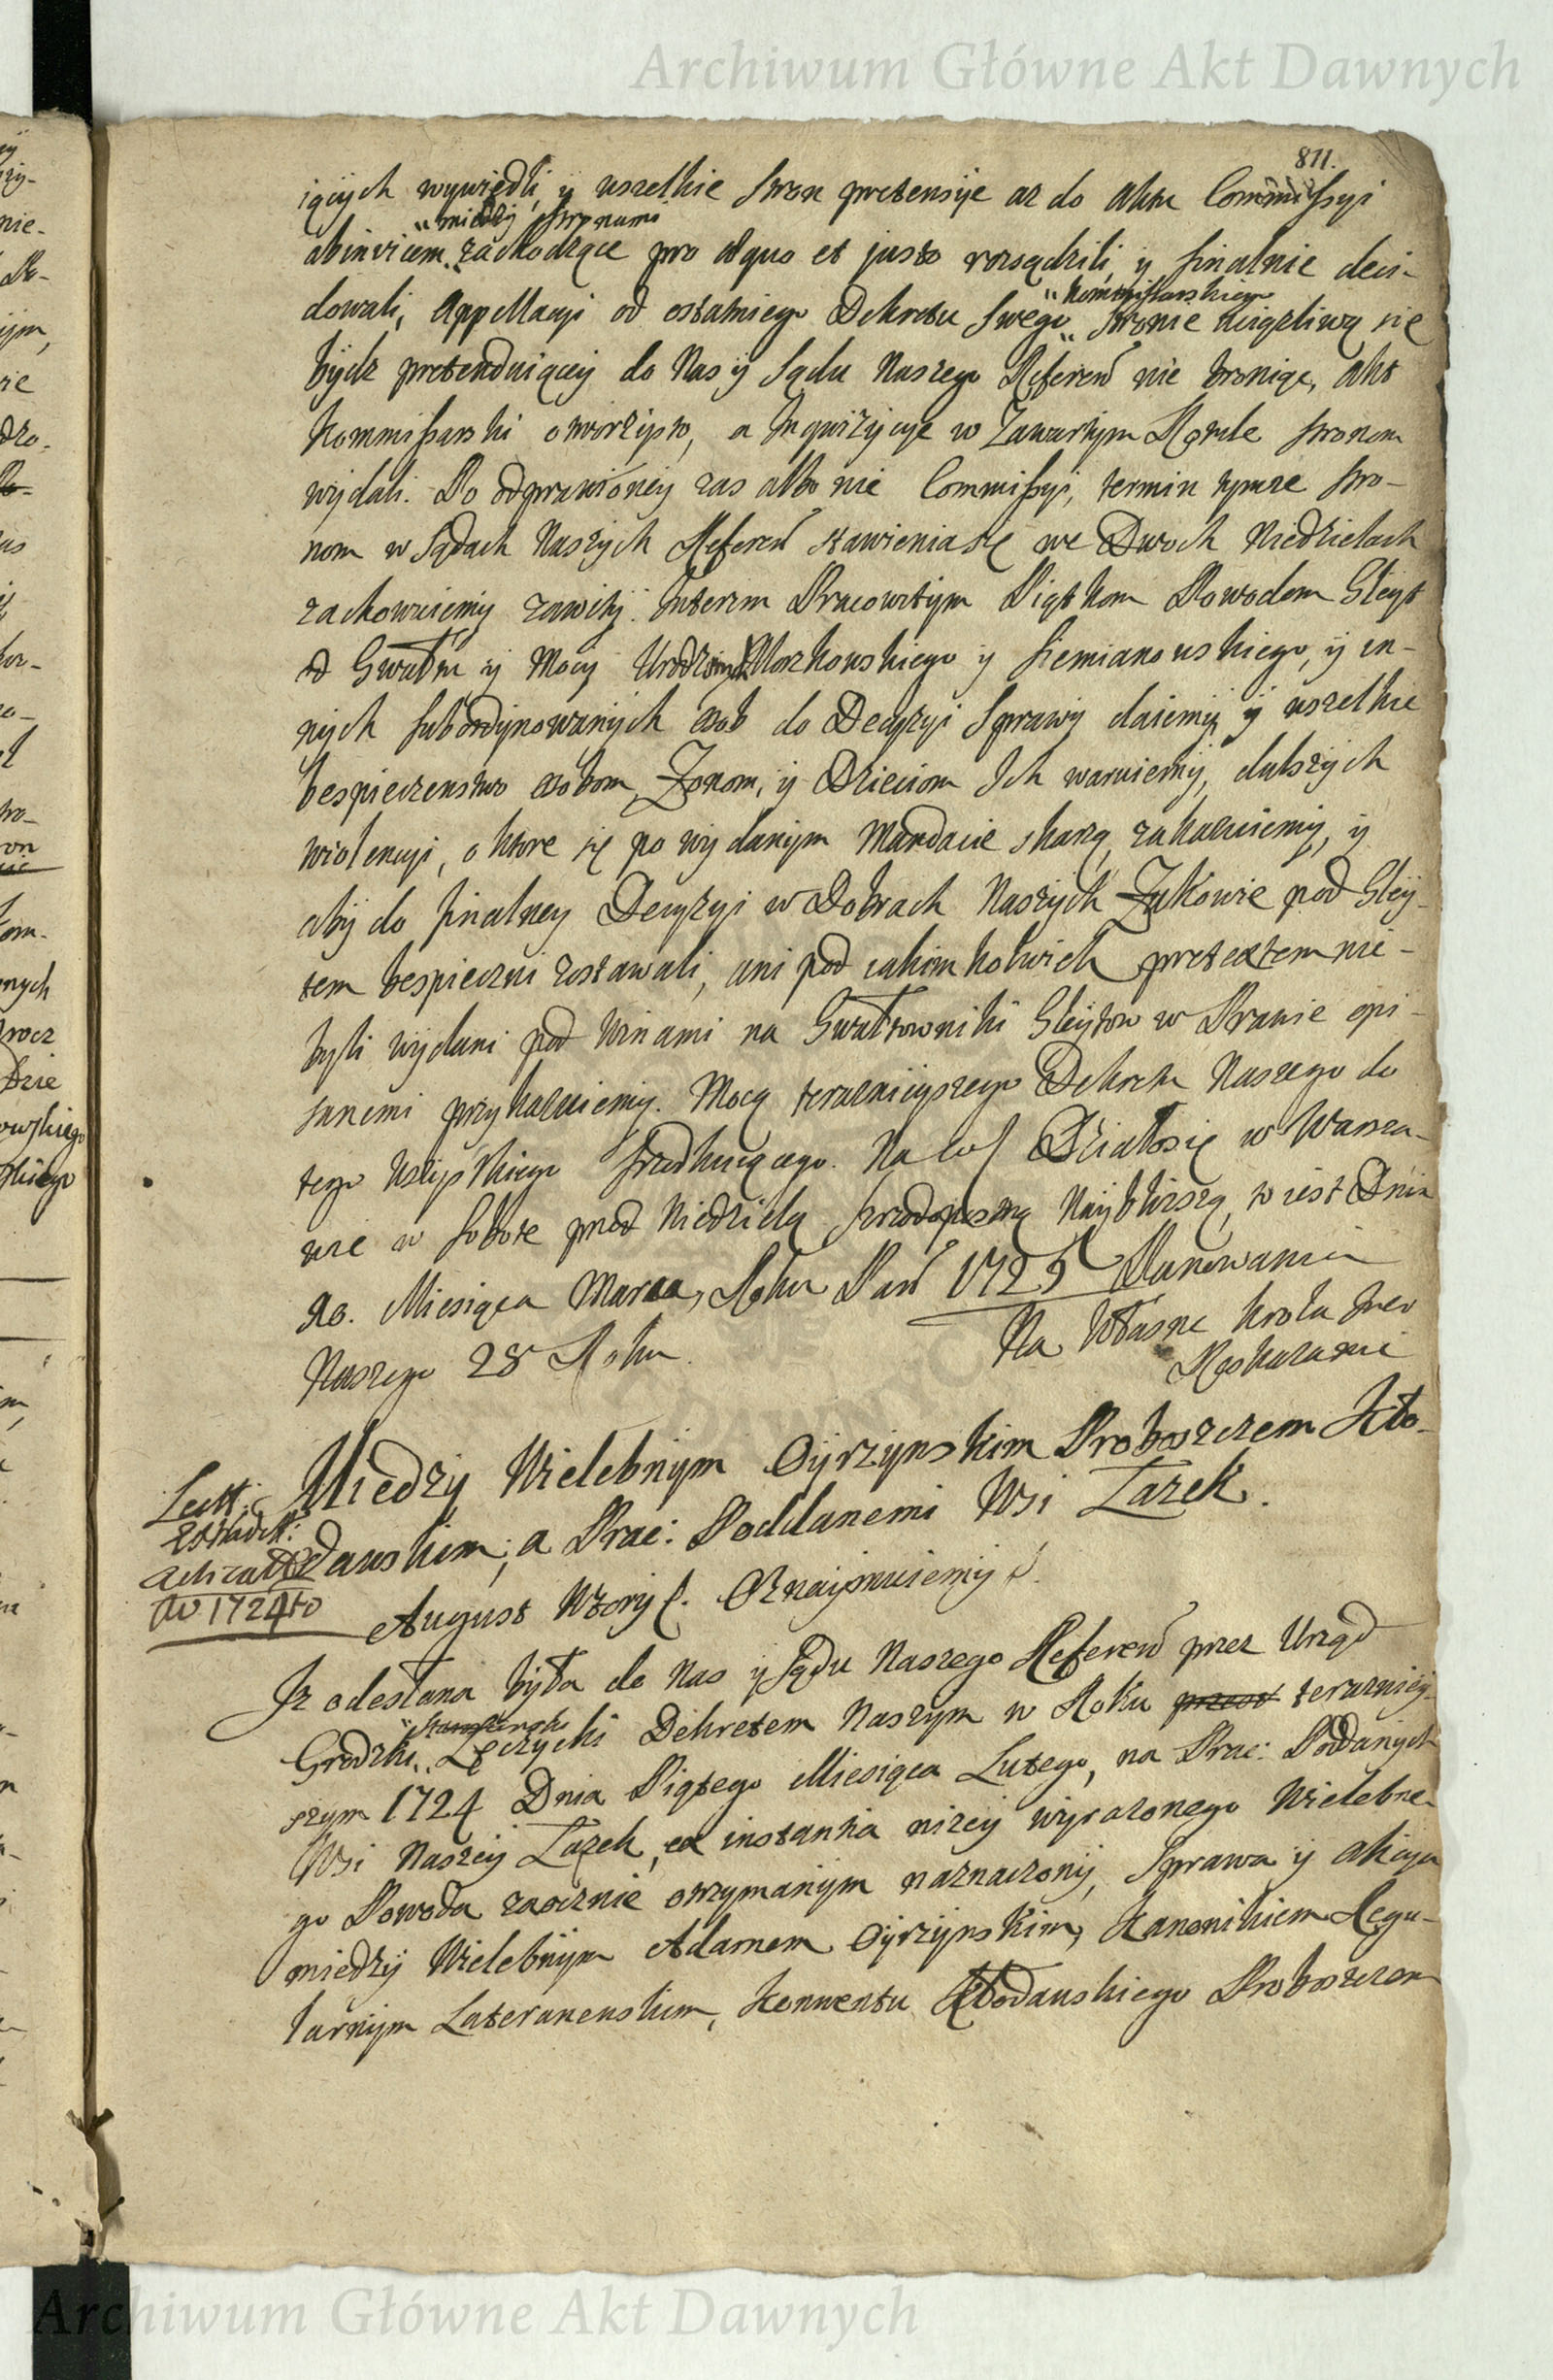 Archiwum Główne Akt Dawnych
811.
iących wywiedli, y wszelkie stron pretensye az do aktu Commissyi
"między stronami
abinvicem,, zachodzące pro aequo et justo rozsądzili, y finalnie deci-
"Kommissarskiego
dowali, Appellacyi od ostatniego Dekretu swego,, stronie uciązliwą się
bydz pretenduiącey do Nas y Sądu Naszego Referen nie broniąc, akt
Kommissarski otworzysto, a Inquizycye w Zawartym Rotule stronom
wydali. Po odprawioney zas albo nie Commissyi, termin tymze stro-
nom w Sądach Naszych Referen stawienia się we Dwoch Niedzielach
zachowuiemy zawity. Interim Pracowitym Piątkom Powodom Gleyt
od Gwałtu y Mocy Urodzonych Morzkowskiego y Siemianowskiego, y in-
nych subordynowanych osob do Decyzyi Sprawy daiemy, y wszelkie
bespieczenstwo osobom, Zonom, y Dzieciom Ich waruiemy, dalszych
wiolencyi, o ktore się po wydanym Mandacie skarzą, zakazuiemy, y
aby do finalney Decyzyi w Dobrach Naszych Zukowie pod Gley-
tem bespieczni zostawali, ani pod iakimkolwiek pretextem nie-
byli wydani pod Winami na Gwałtowniki Gleytow w Prawie opi-
sanemi przykazuiemy. Mocą teraznieyszego Dekretu Naszego do
tego wszystkiego srzodkuiącego. Na co/ Działo się w Warsza-
wie w Sobotę przed Niedzielą srzodopostną Naybliższą, to iest Dnia
10. Miesiąca Marca, Roku Pań 1725 Panowania
Naszego 28 Roku.
Na Własne Krola Jmci
Roskazanie
Między Wielebnym Oyrzynskim Proboszczem Kło-
dawskim, a Prac: Poddanemi Wsi Łazek.
Lectt:
Extradtt:
Ao 1724to
August Wtory /. Oznaymuiemy /.
Iz odesłana była do Nas y Sądu Naszego Referen przez Urząd
Grodzki,, Łęczycki Dekretem Naszym w Roku przest terazniey-
szym 1724 Dnia Piątego Miesiąca Lutego, na Prac: Poddanych
Wsi Naszey Łazek, ex instantia nizey wyrazonego Wielebne-
go Powoda zaocznie otrzymanym naznaczony, Sprawa y akcya
między Wielebnym Adamem Oyrzynskim, Kanonikiem Regu-
larnym Lateranenskim, Konwentu Kłodawskiego Proboszczem
Archiwum Główne Akt Dawnych